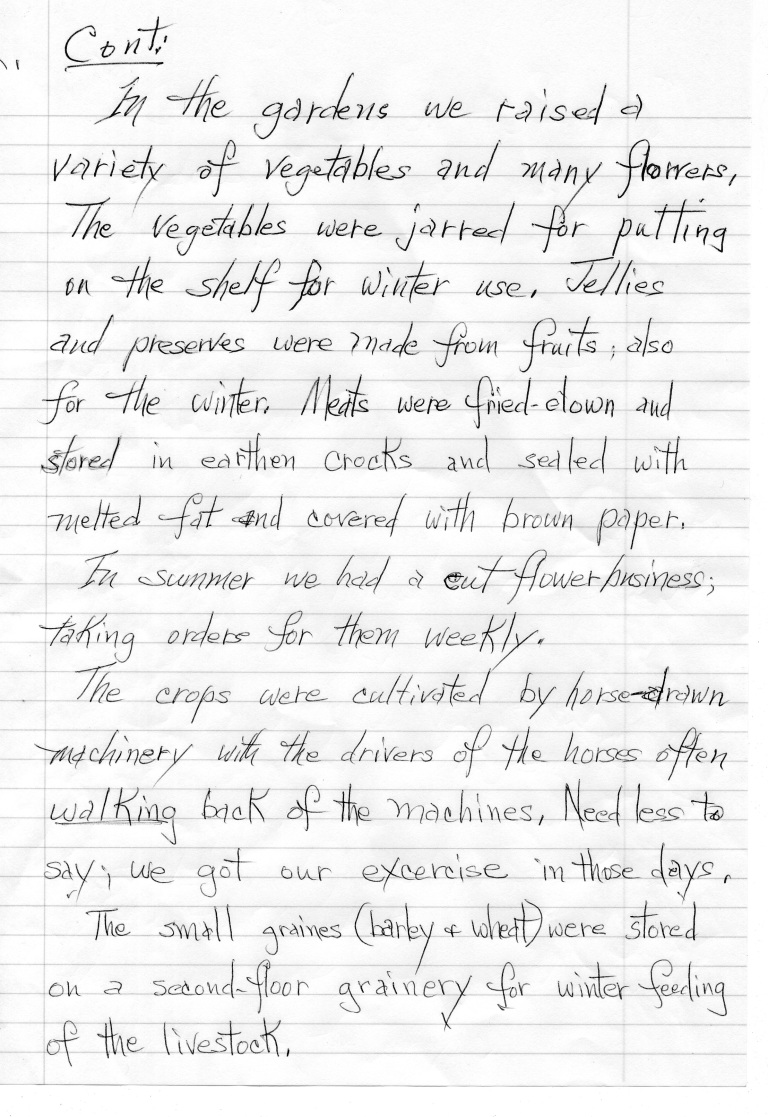 Cont:
In the gardens we raised a
variety of vegetables and many flowers,
The vegetables were jarred for putting
on the shelf for winter use. Jellies
and preserves were made from fruits; also
for the winter. Meats were fried-down and
stored in earthen crocks and sealed with
melted fat and covered with brown paper.
In summer we had a cut flower business;
taking orders for them weekly.
The crops were cultivated by horse-drawn
machinery with the drivers of the horses often
walking back of the machines, Need less to
say; we got our excercise in those days.
The small graines (barley & wheat) were stored
on a second-floor grainery for winter feeding
of the livestock.